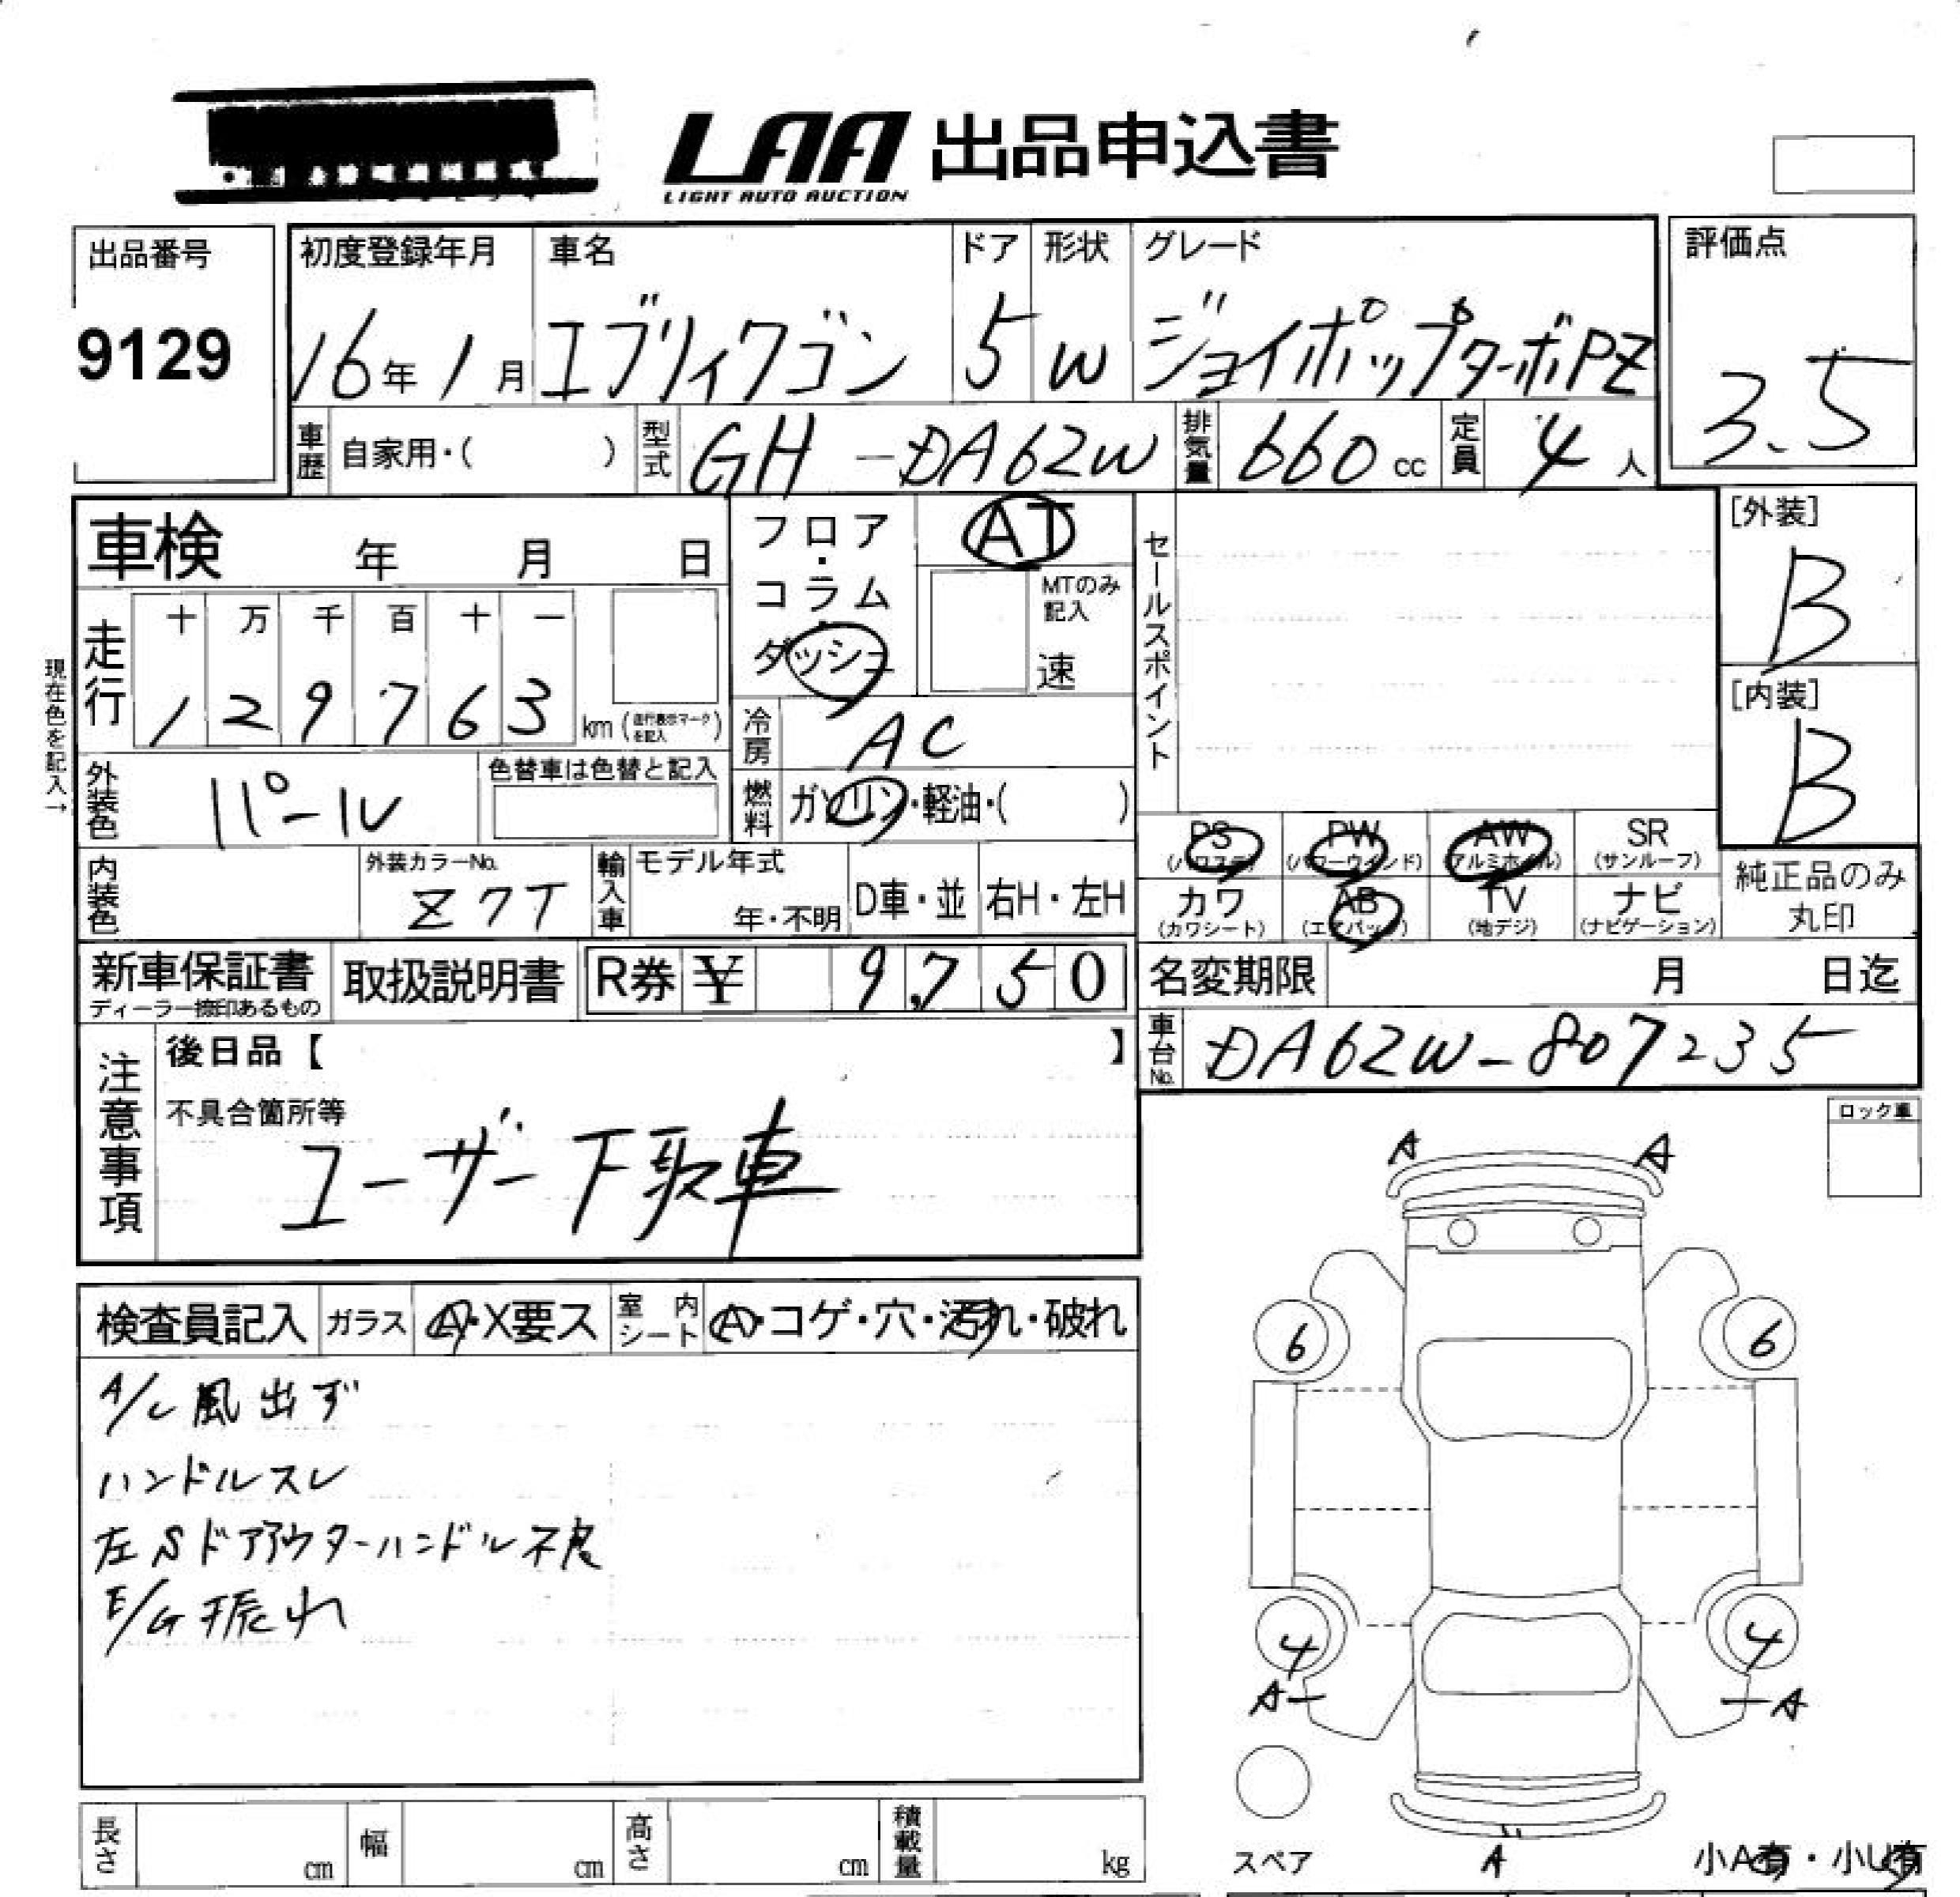 LAA 出品申込書
LIGHT AUTO AUCTION
出品番号
9129
初度登録年月
16年 1月
車名
エブリィワゴン
ドア
5
形状
W
グレード
ジョイポップターボPZ
評価点
3.5
車歴 自家用・( )
型式 GH-DA62W
排気量 660 cc
定員 4 人
車検 年 月 日
フロア・コラム・ダッシュ
AT
MTのみ記入
速
セールスポイント
[外装]
B
[内装]
B
現在色を記入→
走行
十 万 千 百 十 一
1 2 9 7 6 3 km (走行表示マークを記入)
冷房 AC
外装色 パール
色替車は色替と記入
燃料 ガソリン・軽油・( )
PS (パワステ)
PW (パワーウインド)
AW (アルミホイル)
SR (サンルーフ)
カワ (カワシート)
AB (エアバッグ)
TV (地デジ)
ナビ (ナビゲーション)
純正品のみ丸印
内装色
外装カラーNo.
Z7T
輸入車
モデル年式
年・不明
D車・並
右H・左H
新車保証書
ディーラー捺印あるもの
取扱説明書
R券 ¥ 9,750
名変期限 月 日迄
車台No. DA62W-807235
注意事項
後日品【 】
不具合箇所等
ユーザー下取車
ロック車
A A
検査員記入
ガラス A・X要ス
室内シート A・コゲ・穴・汚れ・破れ
A/C 風出ず
ハンドルスレ
左Sドアアウターハンドル不良
E/G振れ
6 6
4 4
A A
スペア
A
小A有・小U有
長さ cm
幅 cm
高さ cm
積載量 kg